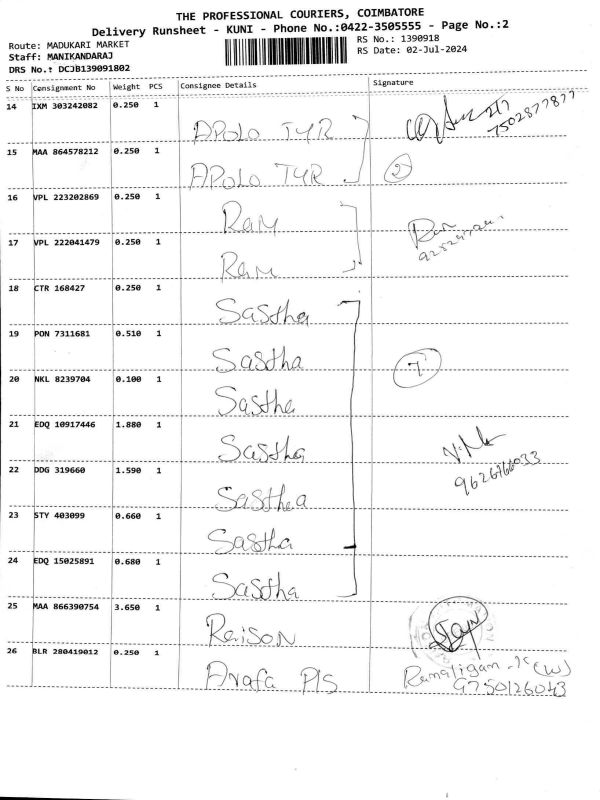 THE PROFESSIONAL COURIERS, COIMBATORE
Delivery Runsheet - KUNI - Phone No.:0422-3505555 - Page No.:2
Route: MADUKARI MARKET
RS No.: 1390918
Staff: MANIKANDARAJ
RS Date: 02-Jul-2024
DRS No.: DCJB139091802
S No Consignment No Weight PCS Consignee Details Signature
14 IXM 303242082 0.250 1
APOLO TYR
7502877877
15 MAA 864578212 0.250 1
APOLO TYR
2
16 VPL 223202869 0.250 1
RAM
Ram
17 VPL 222041479 0.250 1
Ram
18 CTR 168427 0.250 1
Sastha
19 PON 7311681 0.510 1
Sastha
7
20 NKL 8239704 0.100 1
Sastha
21 EDQ 10917446 1.880 1
Sastha
22 DDG 319660 1.590 1
9626766033
Sasthea
23 STY 403099 0.660 1
Sastha
24 EDQ 15025891 0.680 1
Sastha
25 MAA 866390754 3.650 1
Reison
26 BLR 280419012 0.250 1
Arafa PIS
9750126043